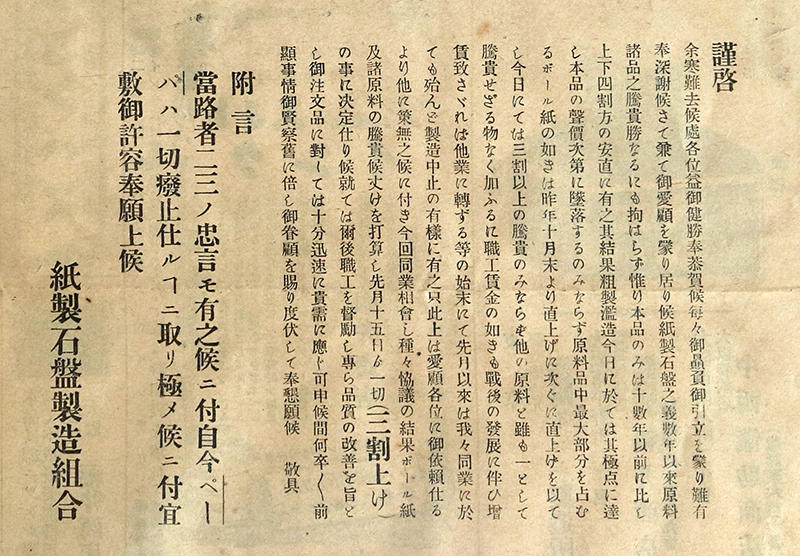 謹啓
余寒難去候處各位益御健勝奉恭賀候毎々御贔負御引立を蒙り難有
奉深謝候さて兼て御愛顧を蒙り居り候紙製石盤之義數年以來原料
諸品之騰貴勝なるにも拘はらず惟り本品のみは十數年以前に比し
上下四割方の安直に有之其結果粗製濫造今日に於ては其極点に達
し本品の聲價次第に墜落するのみならず原料品中最大部分を占む
るボール紙の如きは昨年十月末より直上げに次ぐに直上げを以て
し今日にては三割以上の騰貴のみならず他の原料と雖も一として
騰貴せざる物なく加ふるに職工賃金の如きも戰後の發展に伴ひ增
賃致さゞれは他業に轉ずる等の始末にて先月以來は我々同業に於
ても殆んど製造中止の有樣に有之只此上は愛顧各位に御依賴仕る
より他に策無之候に付き今回同業相會し種々協議の結果ボール紙
及諸原料の騰貴候丈けを打算し先月十五日ゟ一切(二割上け)
の事に决定仕り候就ては爾後職工を督勵し專ら品質の改善を旨と
し御注文品に對しては十分迅速に貴需に應じ可申候間何卒〱前
顯事情御賢察舊に倍し御眷顧を賜り度伏して奉懇願候　敬具
附言
當路者二三ノ忠言モ有之候ニ付自今ペー
パハ一切癈止仕ルヿニ取リ極メ候ニ付宜
敷御許容奉願上候
紙製石盤製造組合